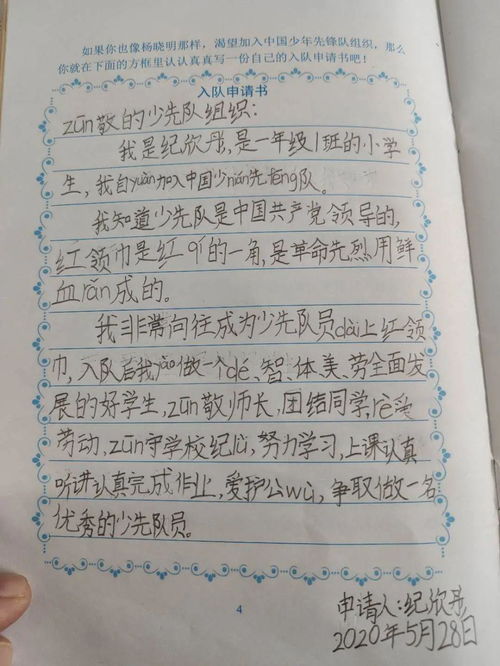 如果你也像杨晓明那样，渴望加入中国少年先锋队组织，那么
你就在下面的方框里认认真真写一份自己的入队申请书吧！
入队申请书
zūn敬的少先队组织：
我是纪欣丹，是一年级1班的小学
生，我自yuàn加入中国少nián先fēng队。
我知道少先队是中国共产党领导的，
红领巾是红qí的一角，是革命先烈用鲜
血rǎn成的。
我非常向往成为少先队员dài上红领
巾，入队后我yào做一个dé、智、体、美、劳全面发
展的好学生，zūn敬师长，团结同学，rè爱
劳动，zūn守学校纪lǜ，努力学习，上课认真
听讲认真完成作业，爱护公wù，争取做一名
优秀的少先队员。
4
申请人：纪欣丹
2020年5月28日